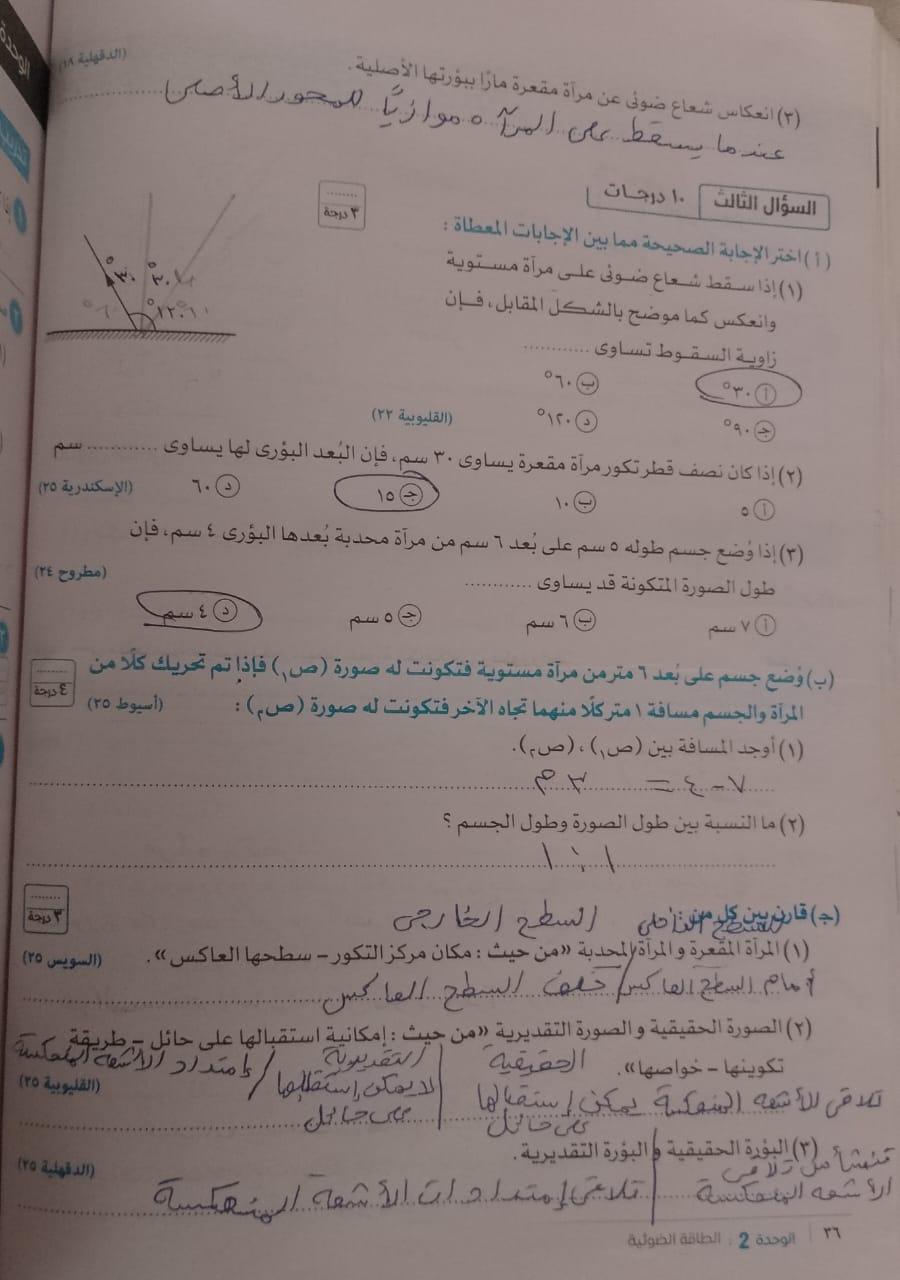 الوحدة
(الدقهلية ١٨)
(٣) انعكاس شعاع ضوئى عن مرآة مقعرة مارًا ببؤرتها الأصلية.
عندما يسقط على المرآة موازيًا للمحور الأصلى
السؤال الثالث ١٠ درجات
٣ درجة
(أ) اختر الإجابة الصحيحة مما بين الإجابات المعطاة :
(١) إذا سقط شعاع ضوئى على مرآة مستوية
وانعكس كما موضح بالشكل المقابل، فإن
زاوية السقوط تساوى ............
٣٠° ٣٠°
١٢٠°
أ ٣٠° ب ٦٠°
ج ٩٠° د ١٢٠° (القليوبية ٢٢)
(٢) إذا كان نصف قطر تكور مرآة مقعرة يساوى ٣٠ سم، فإن البُعد البؤرى لها يساوى ............ سم
أ ٥ ب ١٠ ج ١٥ د ٦٠ (الإسكندرية ٢٥)
(٣) إذا وُضع جسم طوله ٥ سم على بُعد ٦ سم من مرآة محدبة بُعدها البؤرى ٤ سم، فإن
طول الصورة المتكونة قد يساوى ............ (مطروح ٢٤)
أ ٧ سم ب ٦ سم ج ٥ سم د ٤ سم
(ب) وُضع جسم على بُعد ٦ متر من مرآة مستوية فتكونت له صورة (ص١) فإذا تم تحريك كلًا من
المرآة والجسم مسافة ١ متر كلًا منهما تجاه الآخر فتكونت له صورة (ص٢) : (أسيوط ٢٥)
٤ درجة
(١) أوجد المسافة بين (ص١)، (ص٢).
٧ - ٤ = ٣ م
(٢) ما النسبة بين طول الصورة وطول الجسم ؟
١ : ١
٣ درجة
(جـ) قارن بين كل من :
السطح الداخلى السطح الخارجى
(١) المرآة المقعرة و المرآة المحدبة «من حيث : مكان مركز التكور – سطحها العاكس». (السويس ٢٥)
أمام السطح العاكس / خلف السطح العاكس
(٢) الصورة الحقيقية و الصورة التقديرية «من حيث : إمكانية استقبالها على حائل – طريقة
تكوينها – خواصها». (القليوبية ٢٥)
الحقيقية التقديرية / إمتداد الأشعة المنعكسة
تلاقى الأشعة المنعكسة يمكن إستقبالها على حائل
لا يمكن إستقبالها على حائل
(٣) البؤرة الحقيقية و البؤرة التقديرية. (الدقهلية ٢٥)
تنشأ من تلاقى
الأشعة المنعكسة تلاقى إمتدادات الأشعة المنعكسة
٣٦ الوحدة 2 : الطاقة الضوئية